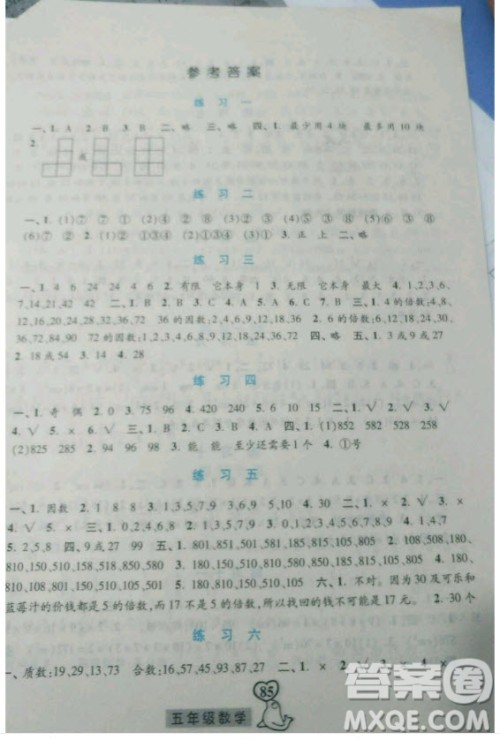 参考答案
练习一
一、1. A 2. B 3. B 二、略 三、略 四、1. 最少用4块 最多用10块
2. 或
练习二
一、1. (1)⑦ ⑦ ① (2)④ ③ ④ (3)⑥ ⑧ ⑧ (4)⑤ ⑥ ③ ⑧
(6)⑦ ⑦ 2. (1)②④ (2)①③④ (3)①③④ 3. 正 上 二、略
练习三
一、1. 4 6 24 24 4 6 2. 有限 它本身 1 3. 无限 它本身 最大 4. 1,2,3,
6,7,14,21,42 42 二、1. B 2. B 3. C 4. A 5. B 三、略 四、1. 4的倍数:4,8,
12,16,20,24,28,32,36,72 36的因数:1,2,4,12,18,36 2. 6的倍数:6,12,18,24,30,
36,72,84,90 72的因数:1,2,3,4,6,8,9,12,18,24,36,72 四、略 五、1. 9或27
2. 18或54 3. 14 4. 28
练习四
一、1. 奇 偶 2. 0 3. 75 96 4. 420 240 5. 6 10 15 二、1. √ 2. √ 3. √
4. × 5. × 三、1. B 2. B 3. C 4. A 5. B 四、1. (1)852 582 528 258
(2)825 285 2. 94 96 98 3. 能 能 至少还需要1个 4. ①号
练习五
一、1. 因数 2. 1 8 8 3. 1,3,5,7,9 3,6,9 3,9 4. 30 二、1. × 2. √ 3. ×
4. √ 5. × 三、1. C 2. B 3. A 4. B 5. C 四、1. 0,3,6,9 2. 1,4,7 3. 0 4. 1,4,7
5. 2,5,8 四、9或27 99 五、1. 801,851,501,581,105,185,805,815 2. 180,
810,150,510,158,518,108,508,580,850 3. 180,810,150,510,580,850,185,805,105 4. 180,
810,108,801,150,510,105,501 5. 180,810,150,510 六、1. 不对。因为30及可乐和
蓝莓汁的价钱都是5的倍数,而17不是5的倍数,所以找回的钱不可能是17元。 2. 30个
练习六
一、质数:19,29,13,73 合数:16,57,45,93,87,27 二、1. × 2.
85
五年级数学
答案圈
MXQE.COM